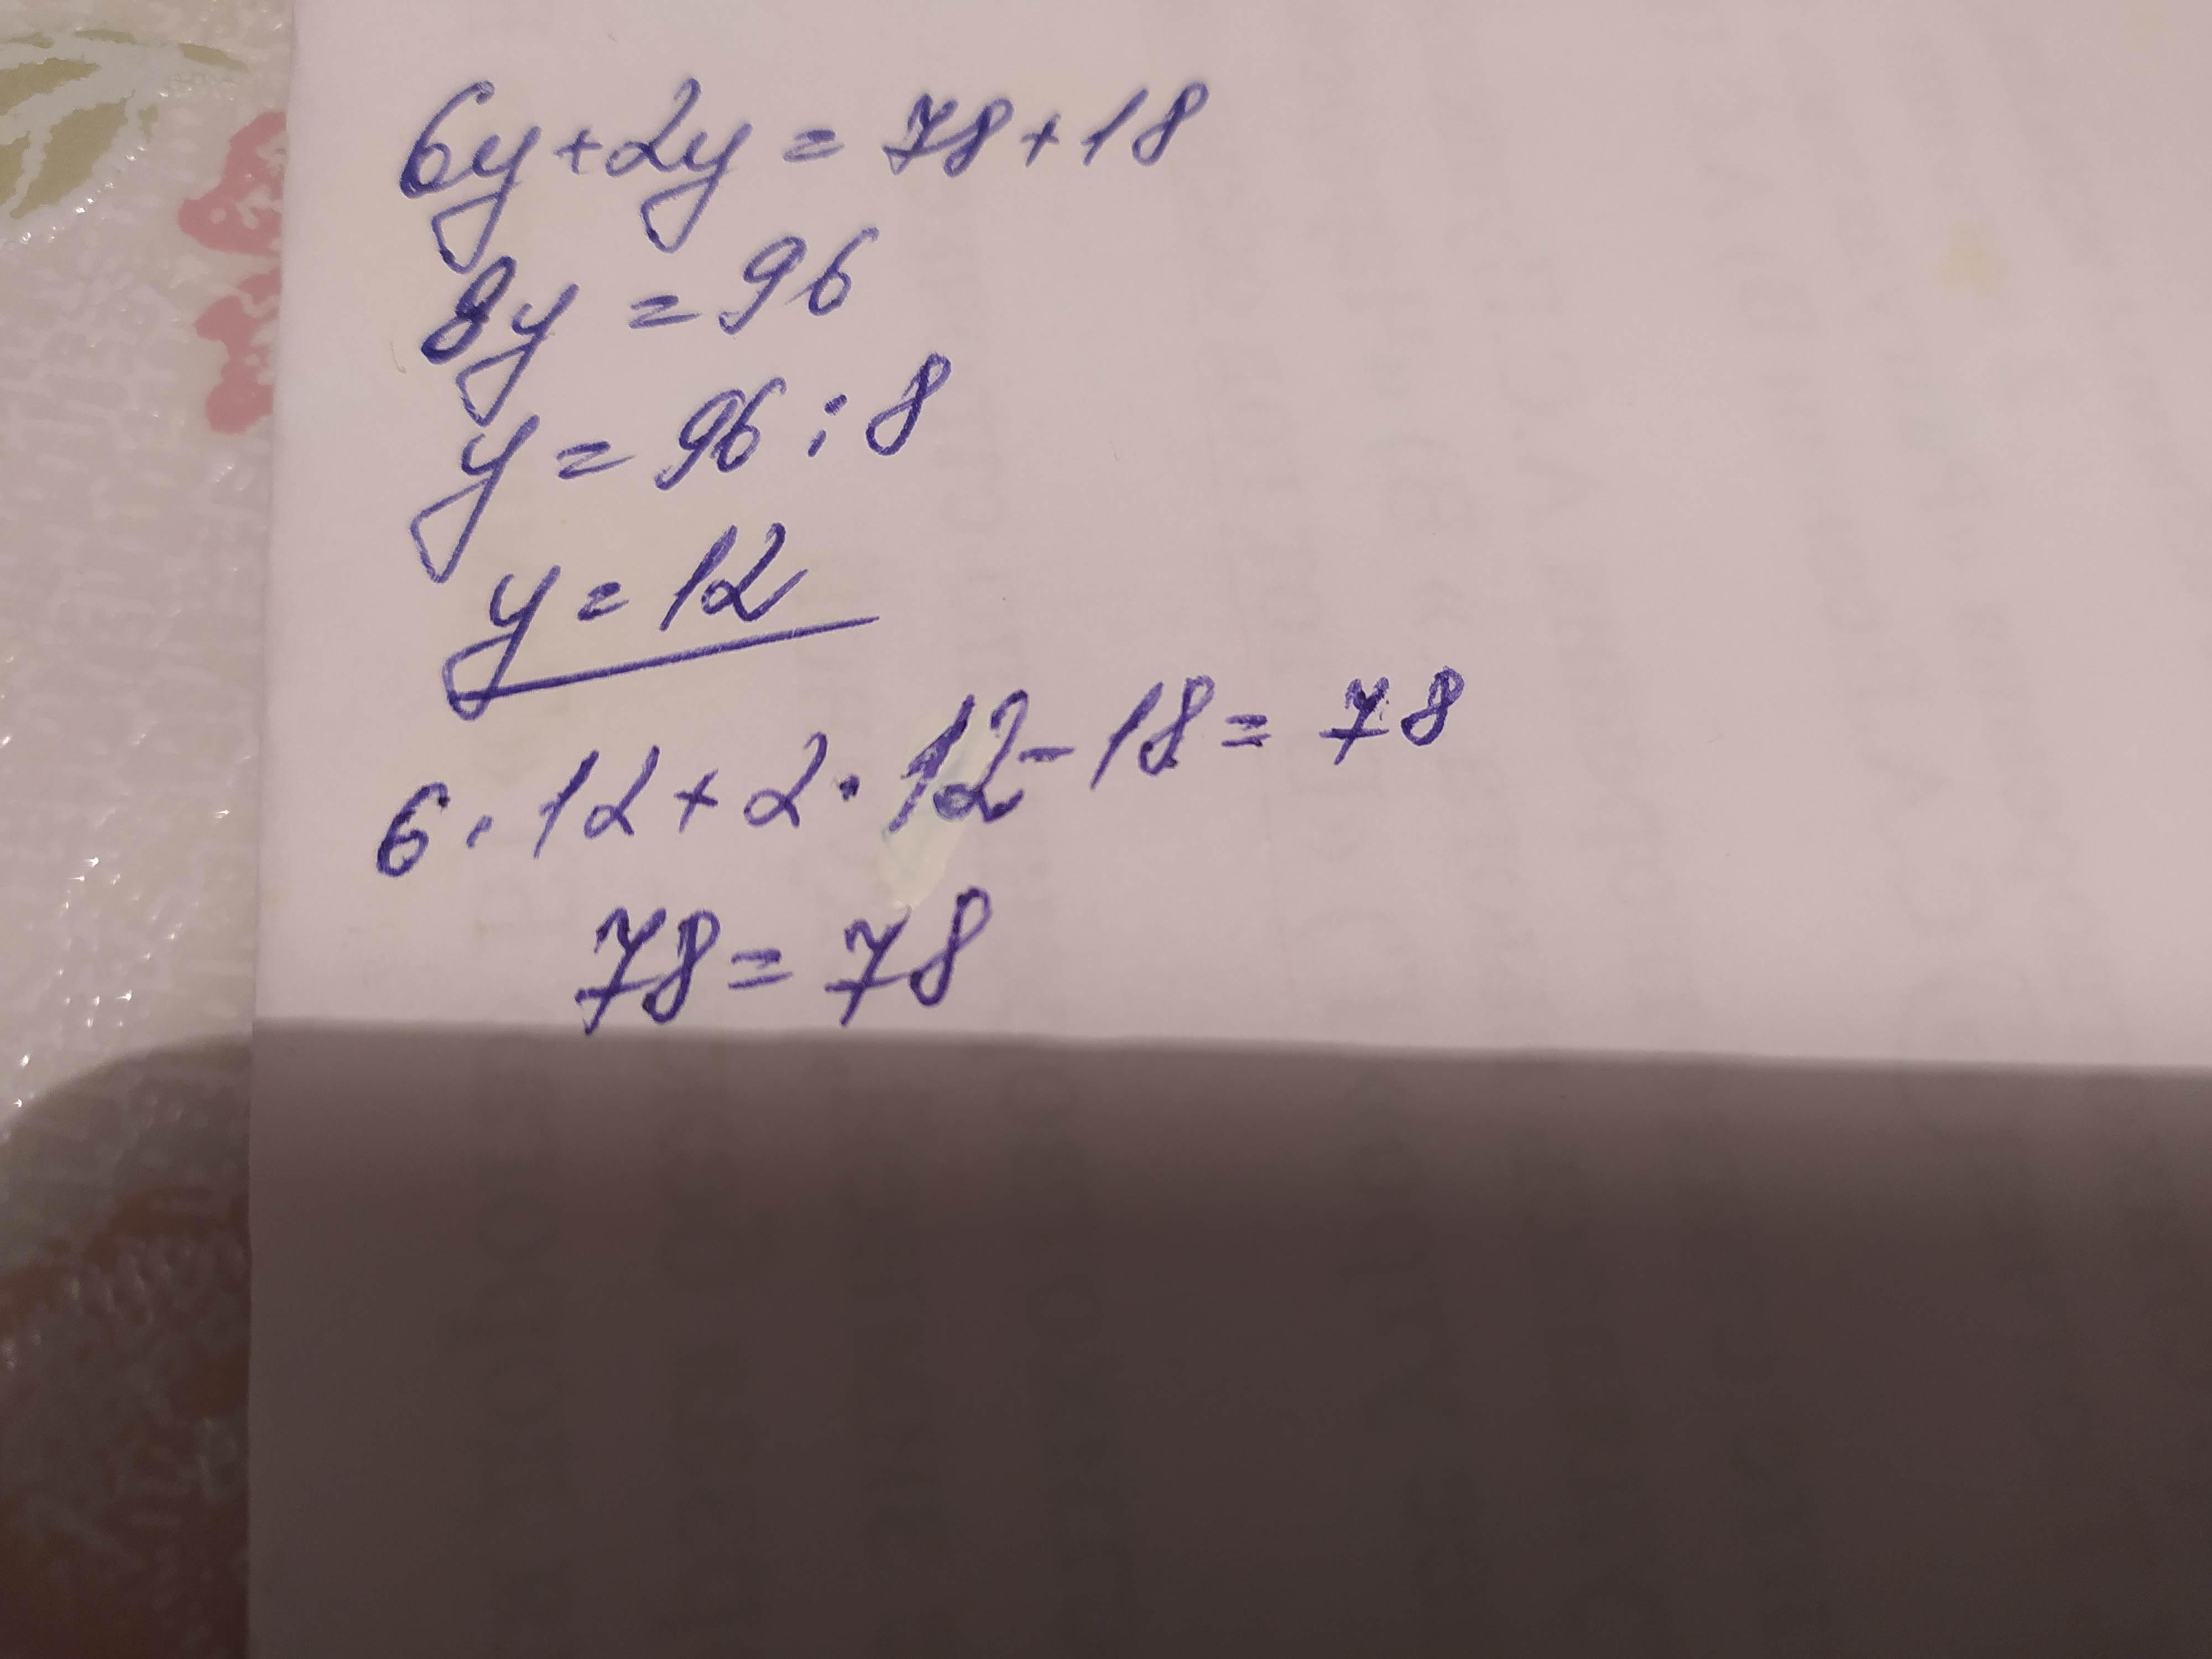 6y+2y = 78+18
8y = 96
y = 96 : 8
y = 12
6 · 12 + 2 · 12 - 18 = 78
78 = 78